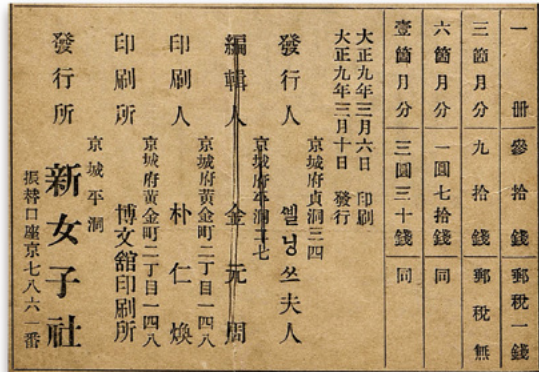 一冊 參拾錢 郵稅一錢
三箇月分 九拾錢 郵稅無
六箇月分 一圓七拾錢 同
壹箇月分 三圓三十錢 同
大正九年三月六日 印刷
大正九年三月十日 發行
京城府貞洞三四
發行人 夫人
京城府平洞
編輯人 金元周
京城府黃金町二丁目一四八
印刷人 朴仁煥
京城府黃金町二丁目一四八
印刷所 博文舘印刷所
京城平洞
發行所 新女子社
振替口座京七八六一番